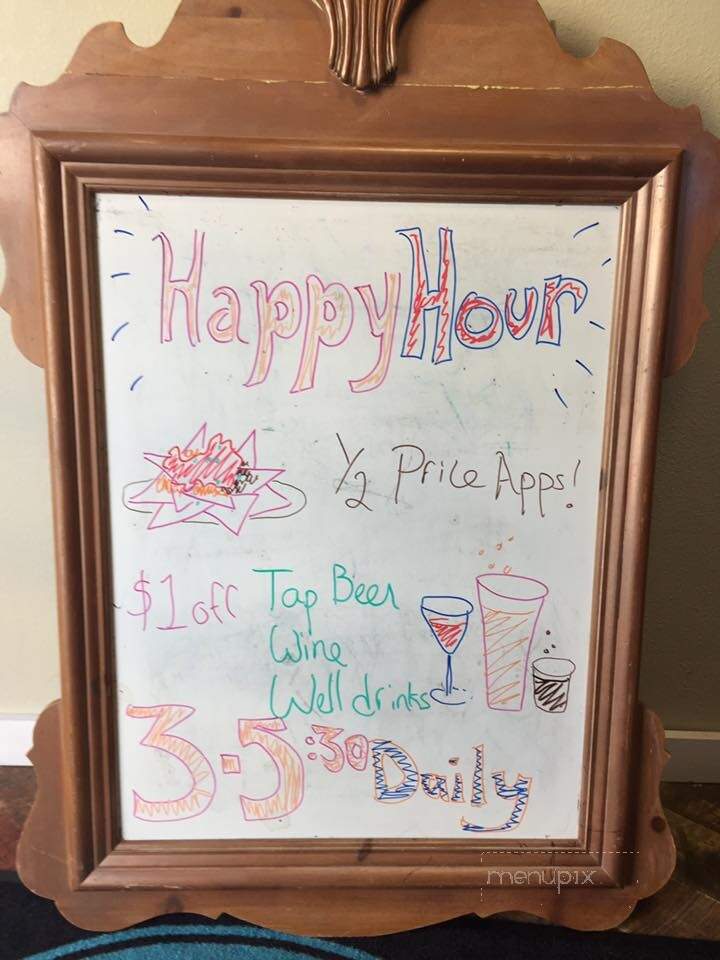 Happy Hour
1/2 Price Apps!
$1 off Tap Beer
Wine
Well drinks
3-5:30 Daily
menupix